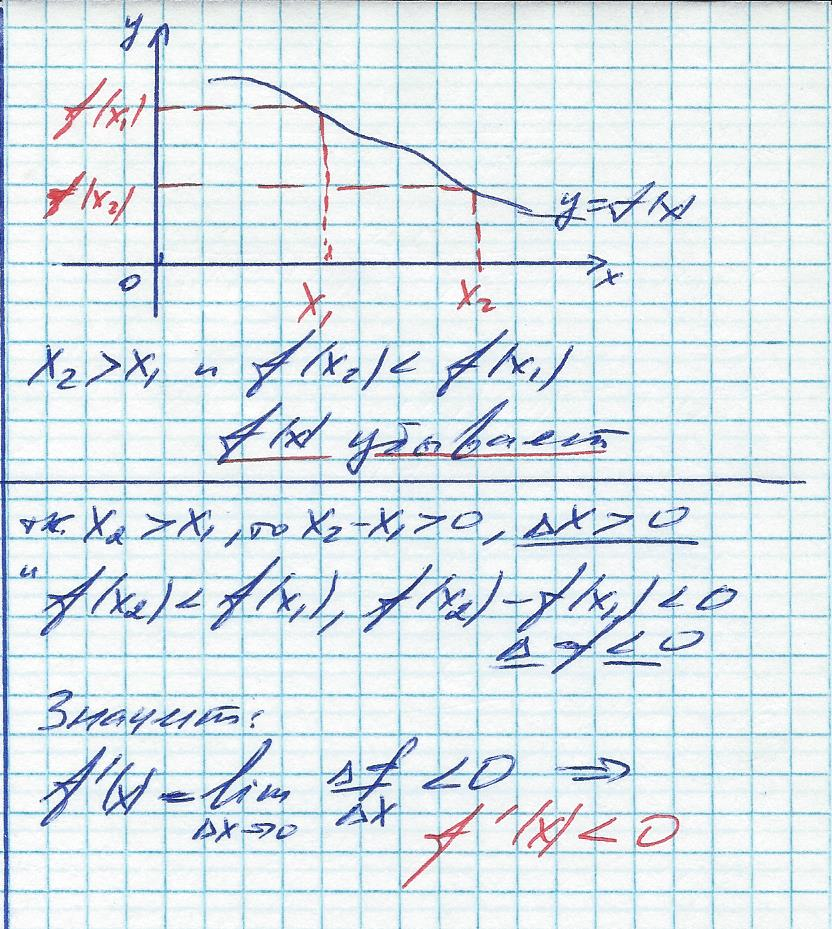 y
f(x₁)
f(x₂)
y=f(x)
0
x
x₁
x₂
x₂>x₁ и f(x₂)< f(x₁)
f(x) убывает
т.к. x₂ >x₁, то x₂-x₁>0, Δx>0
и
f(x₂)< f(x₁), f(x₂)-f(x₁)<0
Δf<0
Значит:
f'(x)=lim Δf/Δx <0 ⇒
Δx→0
f'(x)<0